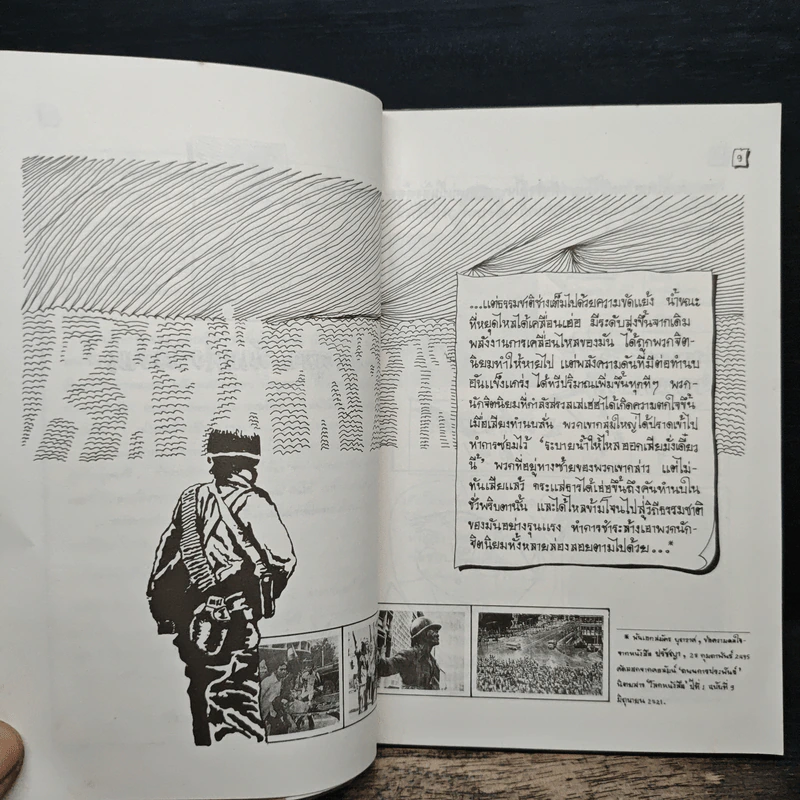 ๑
...แต่ธรรมชาติช่างเต็มไปด้วยความขัดแย้ง น้ำขณะ
ที่หยุดไหลได้เคลื่อนเอ่อ มีระดับสูงขึ้นจากเดิม
พลังงานการเคลื่อนไหลของมัน ได้ถูกพวกจิต-
นิยมทำให้หายไป แต่พลังความดันที่มีต่อทำนบ
อันแข็งแกร่ง ได้ทวีปริมาณเพิ่มขึ้นทุกทีๆ พวก-
นักจิตนิยมที่กำลังสรวลเสเฮฮาได้เกิดความตกใจขึ้น
เมื่อเสียงทำนบลั่น พวกเขากลุ่มใหญ่ได้ปราดเข้าไป
ทำการซ่อมไว้ "ระบายน้ำให้ไหลออกเสียมั่งเดี๋ยว
นี้" พวกที่อยู่ทางซ้ายของพวกเขากล่าว แต่ไม่-
ทันเสียแล้ว กระแสธารได้เอ่อขึ้นถึงคันทำนบใน
ชั่วพริบตานั้น และได้ไหลข้ามโจนไปสู่วิถีธรรมชาติ
ของมันอย่างรุนแรง ทำการชำระล้างเอาพวกนัก-
จิตนิยมทั้งหลายล่องลอยตามไปด้วย...*
* พันเอกสมัคร บุราวาศ, ข้อความ
จากหนังสือ ปรัชญา, 24 กุมภาพันธ์
คัดลอกจากคอลัมน์
นิตยสาร 'โลกหนังสือ' ปีที่ 1 ฉบับที่ 9
มิถุนายน 2521.